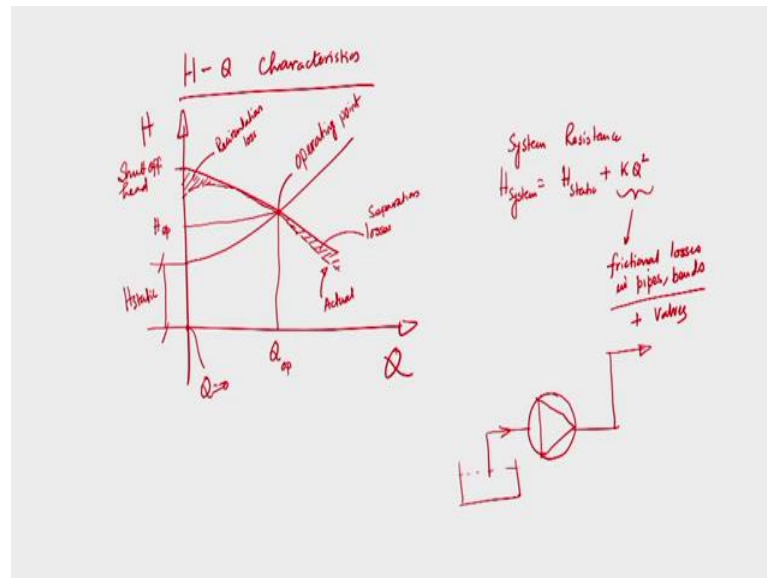 H-Q Characteristics
H
Shut off
head
Recirculation
loss
Operating point
Hop
Hstatic
Separation
losses
Actual
Q=0
Qop
Q
System Resistance
HSystem = Hstatic + KQ²
frictional losses
in pipes, bends
+ Valves